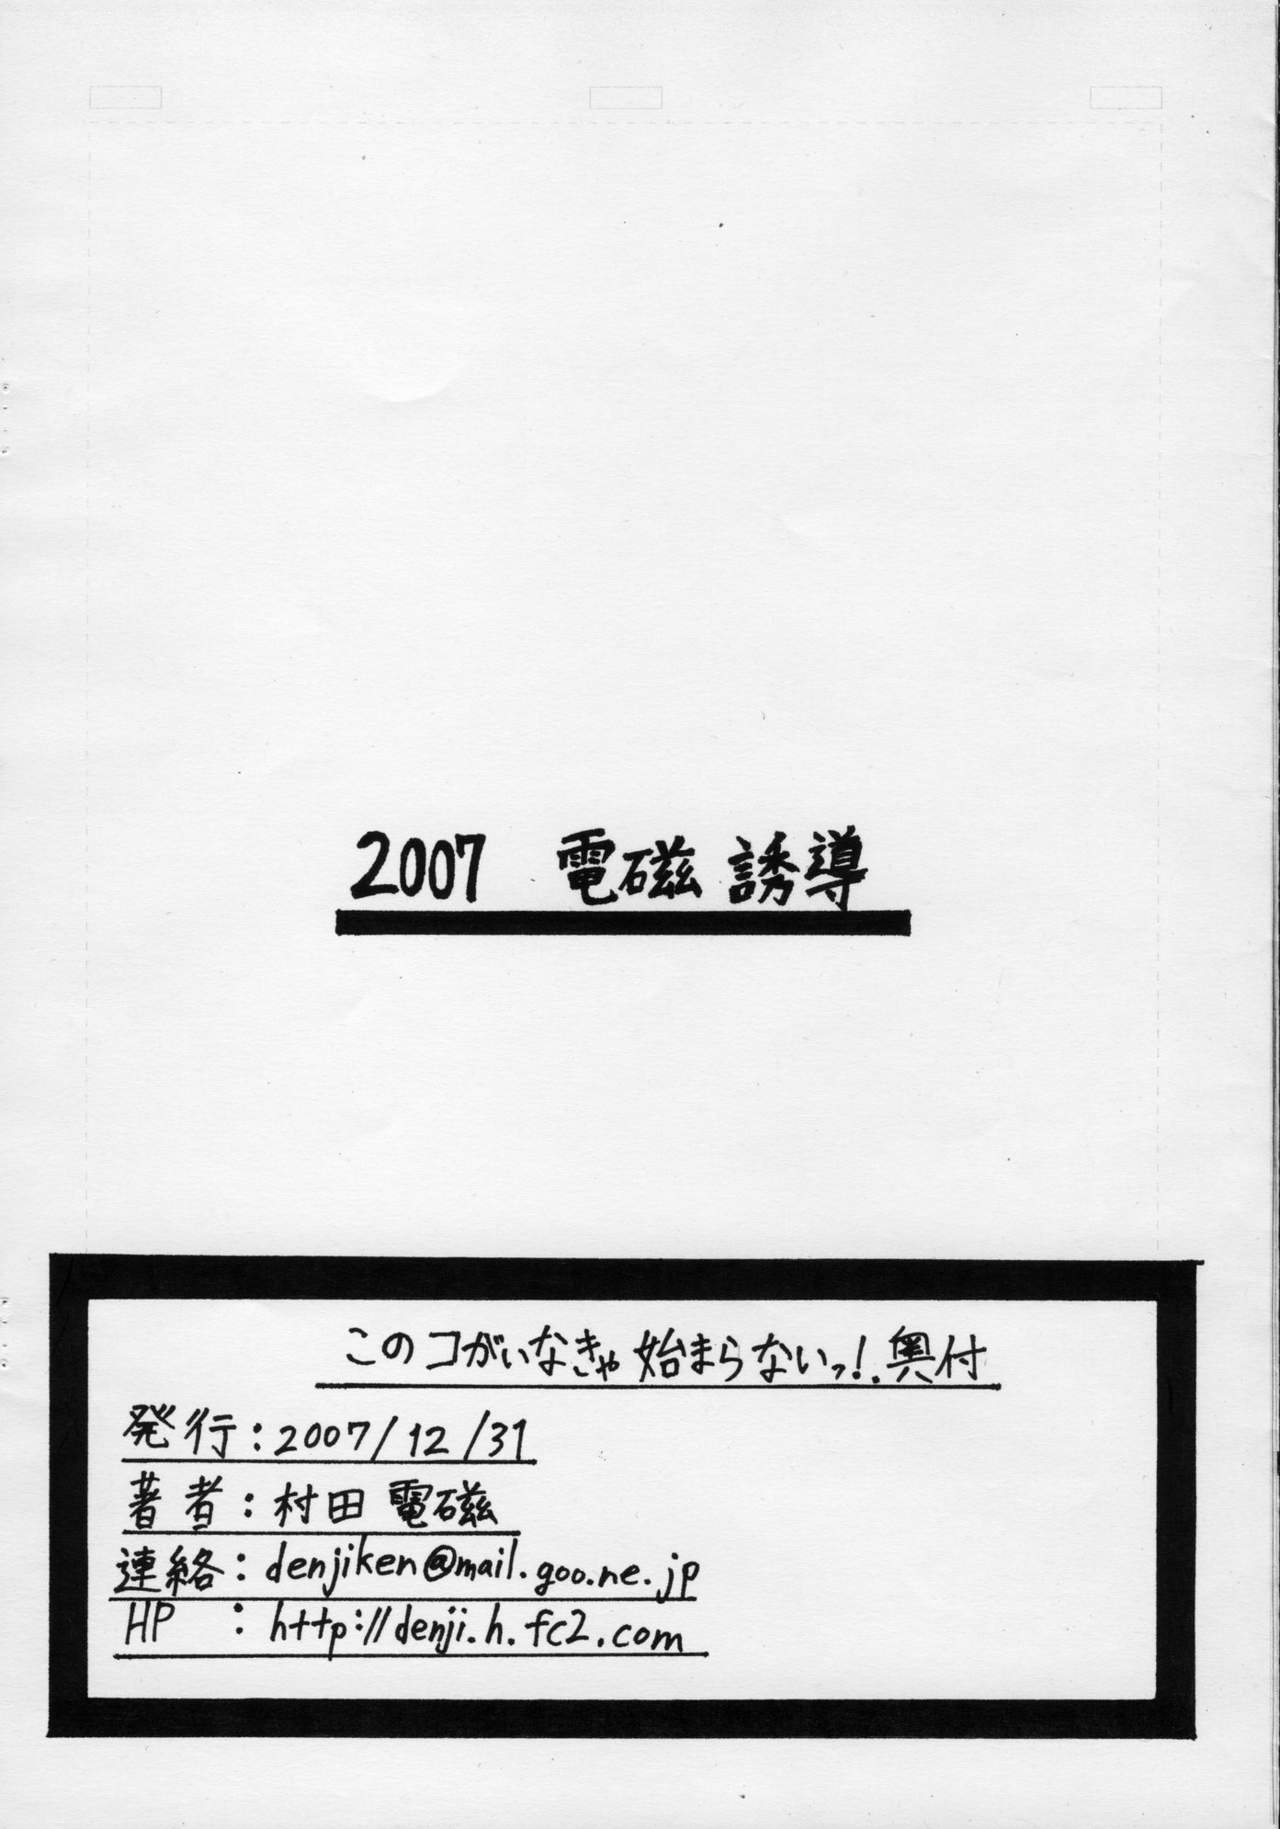 2007 電磁誘導
このコがいなきゃ始まらないっ!.奥付
発行:2007/12/31
著者:村田 電磁
連絡:denjiken@mail.goo.ne.jp
HP :http://denji.h.fc2.com